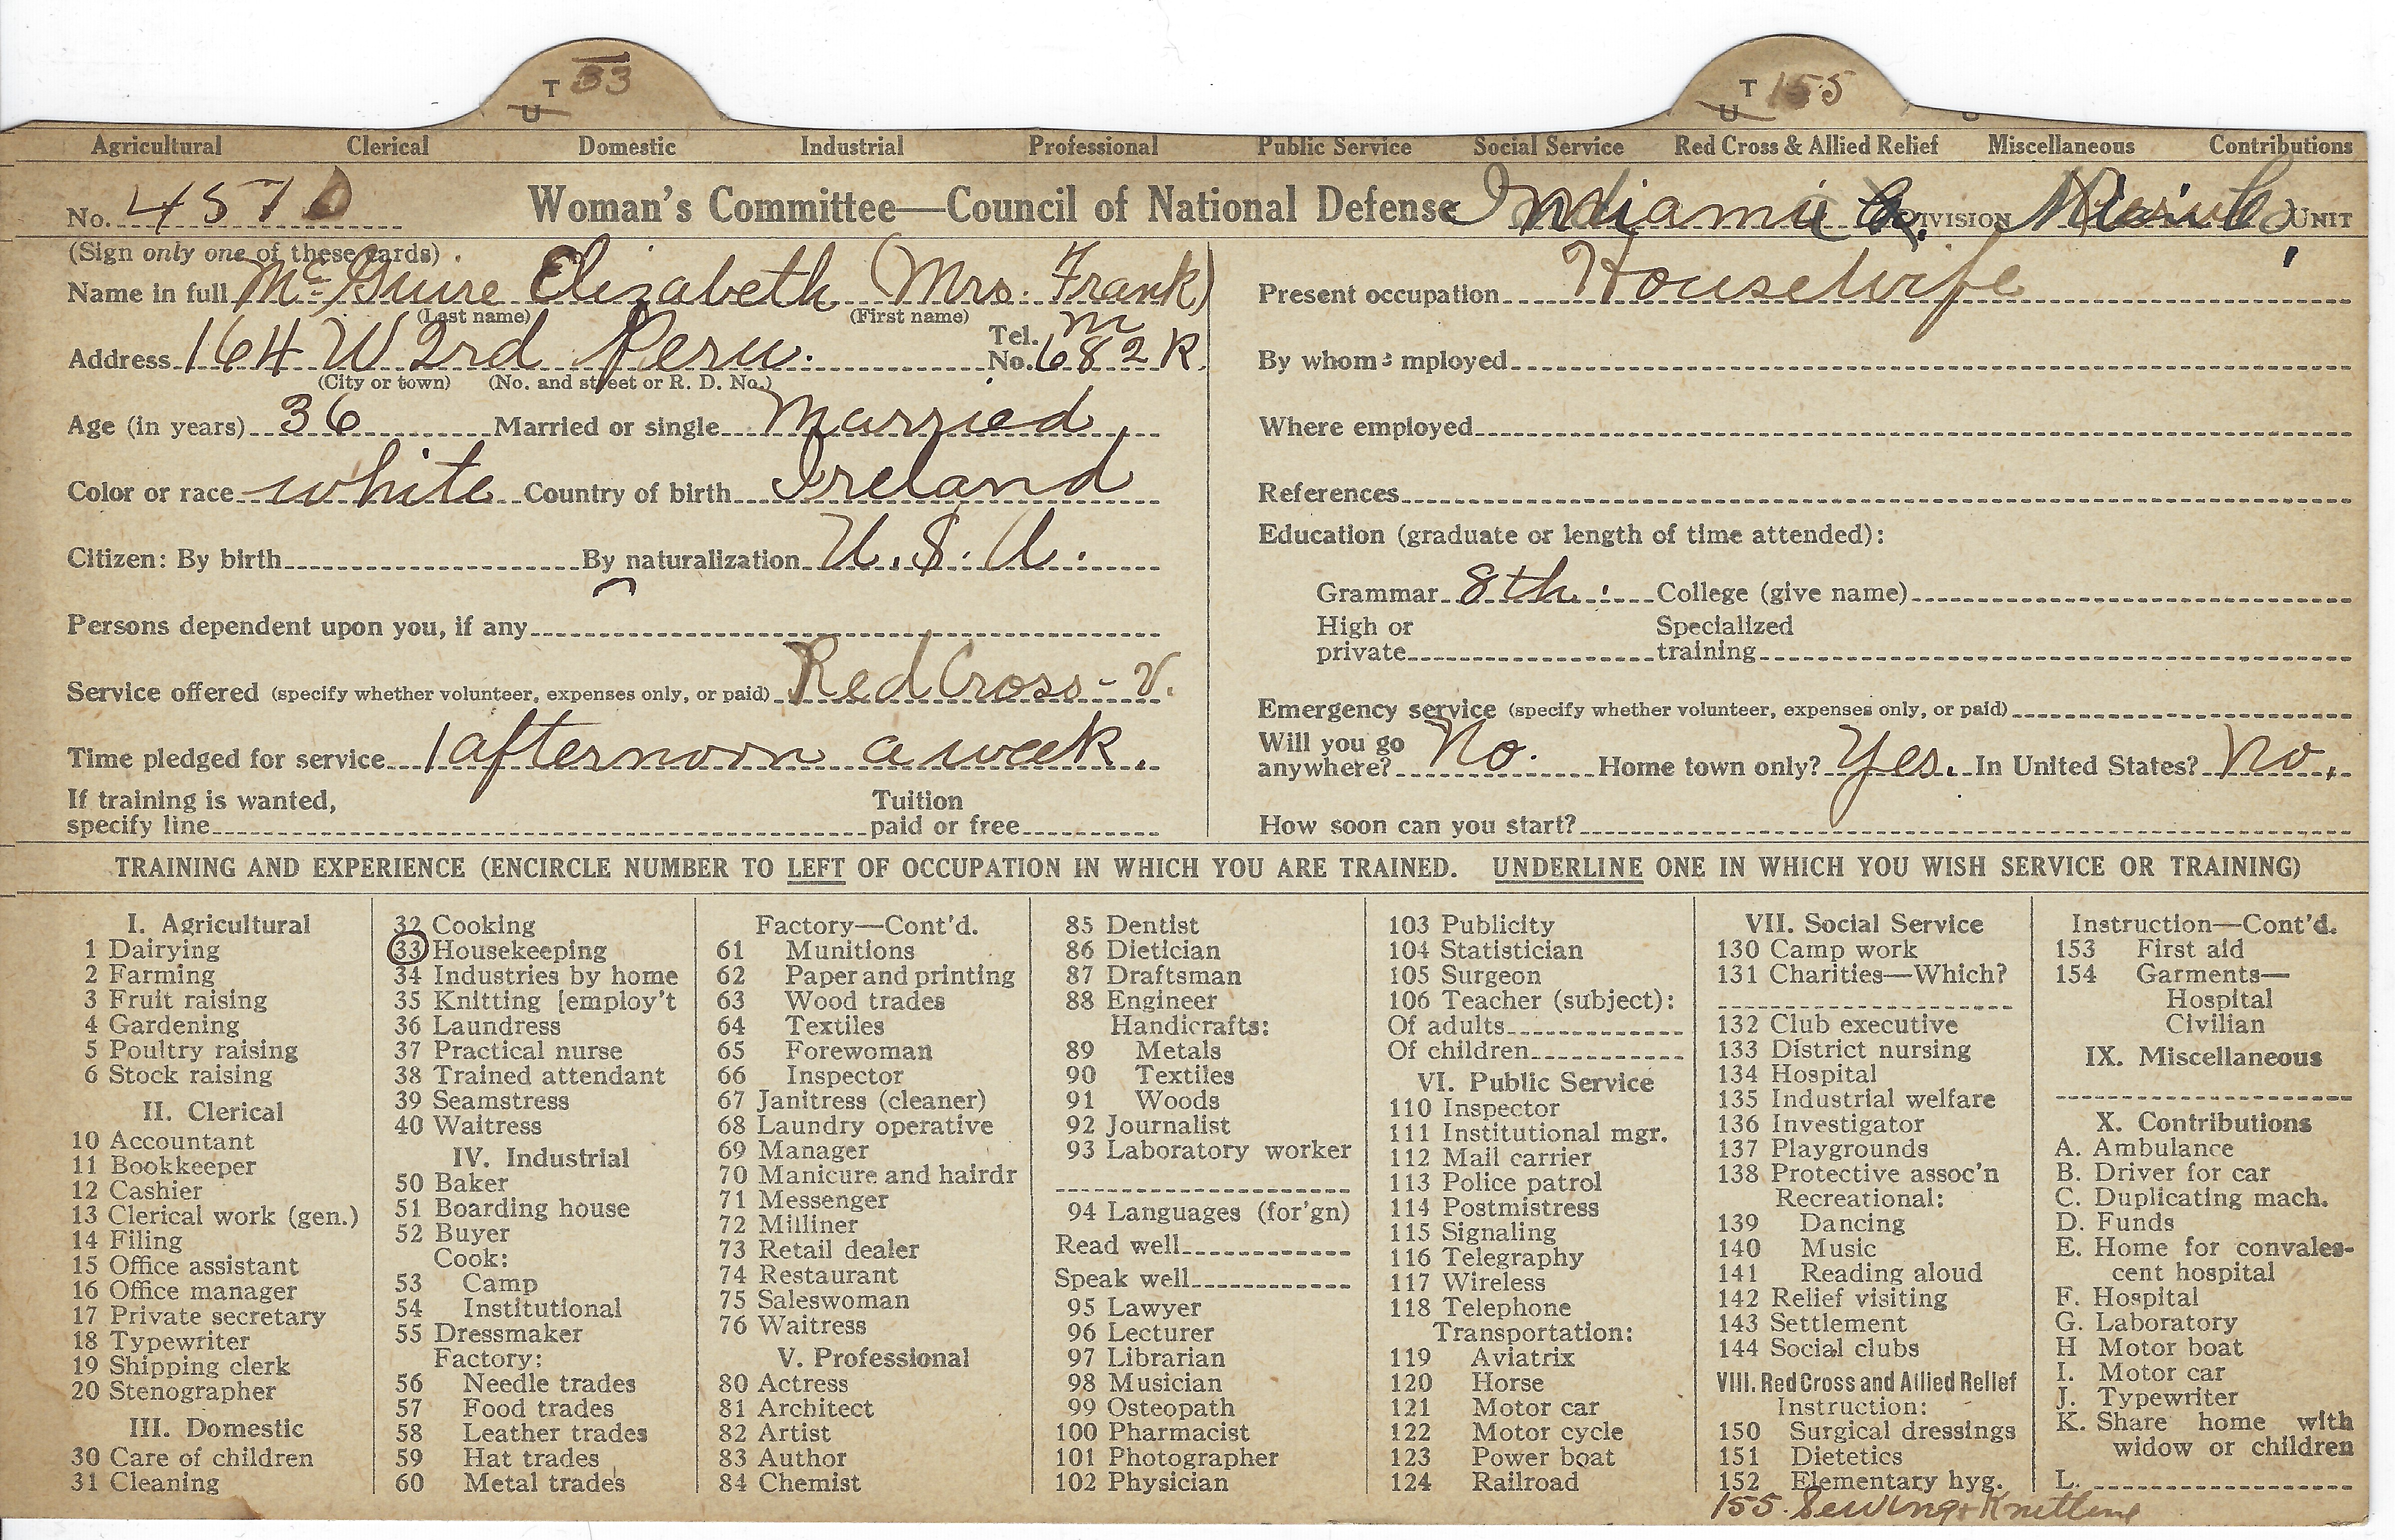 T 33 T 155
U U
Agricultural Clerical Domestic Industrial Professional Public Service Social Service Red Cross & Allied Relief Miscellaneous Contributions
No. 4570 Woman's Committee—Council of National Defense Indiana DIVISION UNIT
(Sign only one of these cards)
Name in full McGuire Elizabeth (Mrs. Frank)
(Last name) (First name)
Address 164 W 2rd Peru. Tel. No. m 682 K
(City or town) (No. and street or R. D. No.)
Age (in years) 36 Married or single Married
Color or race white Country of birth Ireland
Citizen: By birth By naturalization U.S.A.
Persons dependent upon you, if any
Service offered (specify whether volunteer, expenses only, or paid) Red Cross - V.
Time pledged for service 1 afternoon a week.
If training is wanted,
specify line Tuition paid or free
Present occupation Housewife
By whom employed
Where employed
References
Education (graduate or length of time attended):
Grammar 8th. College (give name)
High or private Specialized training
Emergency service (specify whether volunteer, expenses only, or paid)
Will you go anywhere? No. Home town only? Yes. In United States? No.
How soon can you start?
TRAINING AND EXPERIENCE (ENCIRCLE NUMBER TO LEFT OF OCCUPATION IN WHICH YOU ARE TRAINED. UNDERLINE ONE IN WHICH YOU WISH SERVICE OR TRAINING)
I. Agricultural
1 Dairying
2 Farming
3 Fruit raising
4 Gardening
5 Poultry raising
6 Stock raising
II. Clerical
10 Accountant
11 Bookkeeper
12 Cashier
13 Clerical work (gen.)
14 Filing
15 Office assistant
16 Office manager
17 Private secretary
18 Typewriter
19 Shipping clerk
20 Stenographer
III. Domestic
30 Care of children
31 Cleaning
32 Cooking
33 Housekeeping
34 Industries by home
35 Knitting [employ't
36 Laundress
37 Practical nurse
38 Trained attendant
39 Seamstress
40 Waitress
IV. Industrial
50 Baker
51 Boarding house
52 Buyer
Cook:
53 Camp
54 Institutional
55 Dressmaker
Factory:
56 Needle trades
57 Food trades
58 Leather trades
59 Hat trades
60 Metal trades
Factory—Cont'd.
61 Munitions
62 Paper and printing
63 Wood trades
64 Textiles
65 Forewoman
66 Inspector
67 Janitress (cleaner)
68 Laundry operative
69 Manager
70 Manicure and hairdr
71 Messenger
72 Milliner
73 Retail dealer
74 Restaurant
75 Saleswoman
76 Waitress
V. Professional
80 Actress
81 Architect
82 Artist
83 Author
84 Chemist
85 Dentist
86 Dietician
87 Draftsman
88 Engineer
Handicrafts:
89 Metals
90 Textiles
91 Woods
92 Journalist
93 Laboratory worker
94 Languages (for'gn)
Read well
Speak well
95 Lawyer
96 Lecturer
97 Librarian
98 Musician
99 Osteopath
100 Pharmacist
101 Photographer
102 Physician
103 Publicity
104 Statistician
105 Surgeon
106 Teacher (subject):
Of adults
Of children
VI. Public Service
110 Inspector
111 Institutional mgr.
112 Mail carrier
113 Police patrol
114 Postmistress
115 Signaling
116 Telegraphy
117 Wireless
118 Telephone
Transportation:
119 Aviatrix
120 Horse
121 Motor car
122 Motor cycle
123 Power boat
124 Railroad
VII. Social Service
130 Camp work
131 Charities—Which?
132 Club executive
133 District nursing
134 Hospital
135 Industrial welfare
136 Investigator
137 Playgrounds
138 Protective assoc'n
Recreational:
139 Dancing
140 Music
141 Reading aloud
142 Relief visiting
143 Settlement
144 Social clubs
VIII. Red Cross and Allied Relief
Instruction:
150 Surgical dressings
151 Dietetics
152 Elementary hyg.
155. Sewing & Knitting
Instruction—Cont'd.
153 First aid
154 Garments—
Hospital
Civilian
IX. Miscellaneous
X. Contributions
A. Ambulance
B. Driver for car
C. Duplicating mach.
D. Funds
E. Home for convales-
cent hospital
F. Hospital
G. Laboratory
H Motor boat
I. Motor car
J. Typewriter
K. Share home with
widow or children
L.